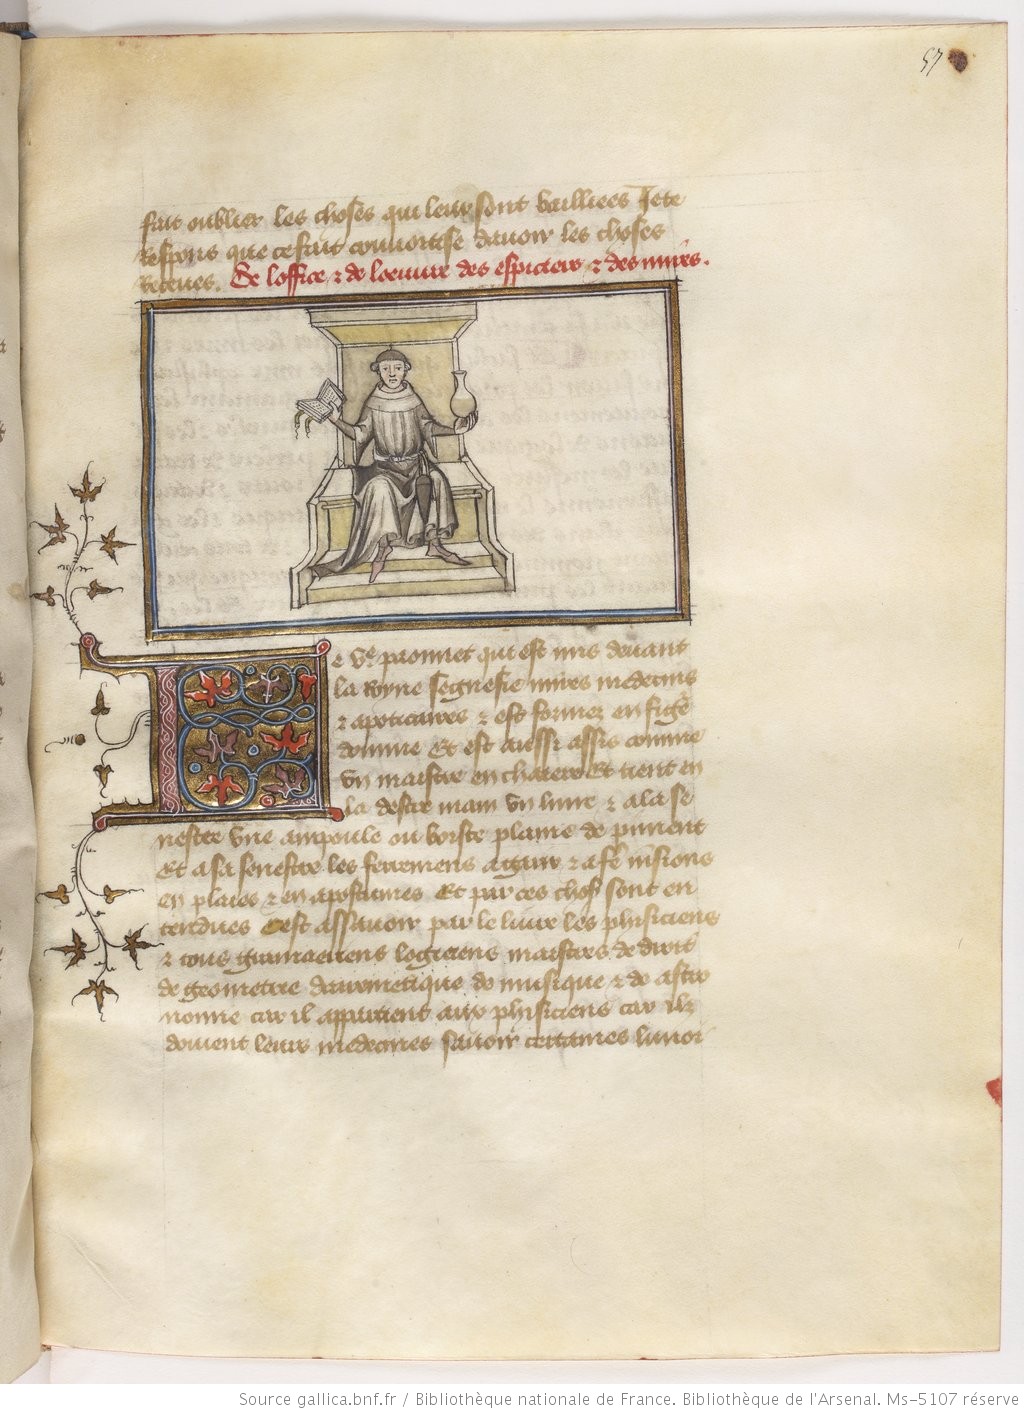 57
fait oublier les choses qui leur sont bailliees Je te
respons que ce fait couuoitise dauoir les choses
receues. De loffice ⁊ de loeuure des espiciers ⁊ des mires.
Le vͤ paonnet qui est mis deuant
la royne segnefie mires medecins
⁊ apoticaires ⁊ est formez en figͤ
domme Et est aussi assis comme
vn maistre en chaiere Et tient en
la destre main vn liure ⁊ a la se
nestre vne ampoule ou boiste plaine de piment
Et a sa senestre les ferremens a garir ⁊ a fͤ insions
en plaies ⁊ en apostumes Et par ces choses sont en
tendues Cest assauoir par le liure les phisiciens
⁊ tous gramariens logiciens maistres de droit
de geometrie darismetique de musique ⁊ de astro
nomie car il appartient aux phisiciens car ilz
doiuent leurs medecines sauoir certaines
Source gallica.bnf.fr / Bibliothèque nationale de France. Bibliothèque de l'Arsenal. Ms-5107 réserve